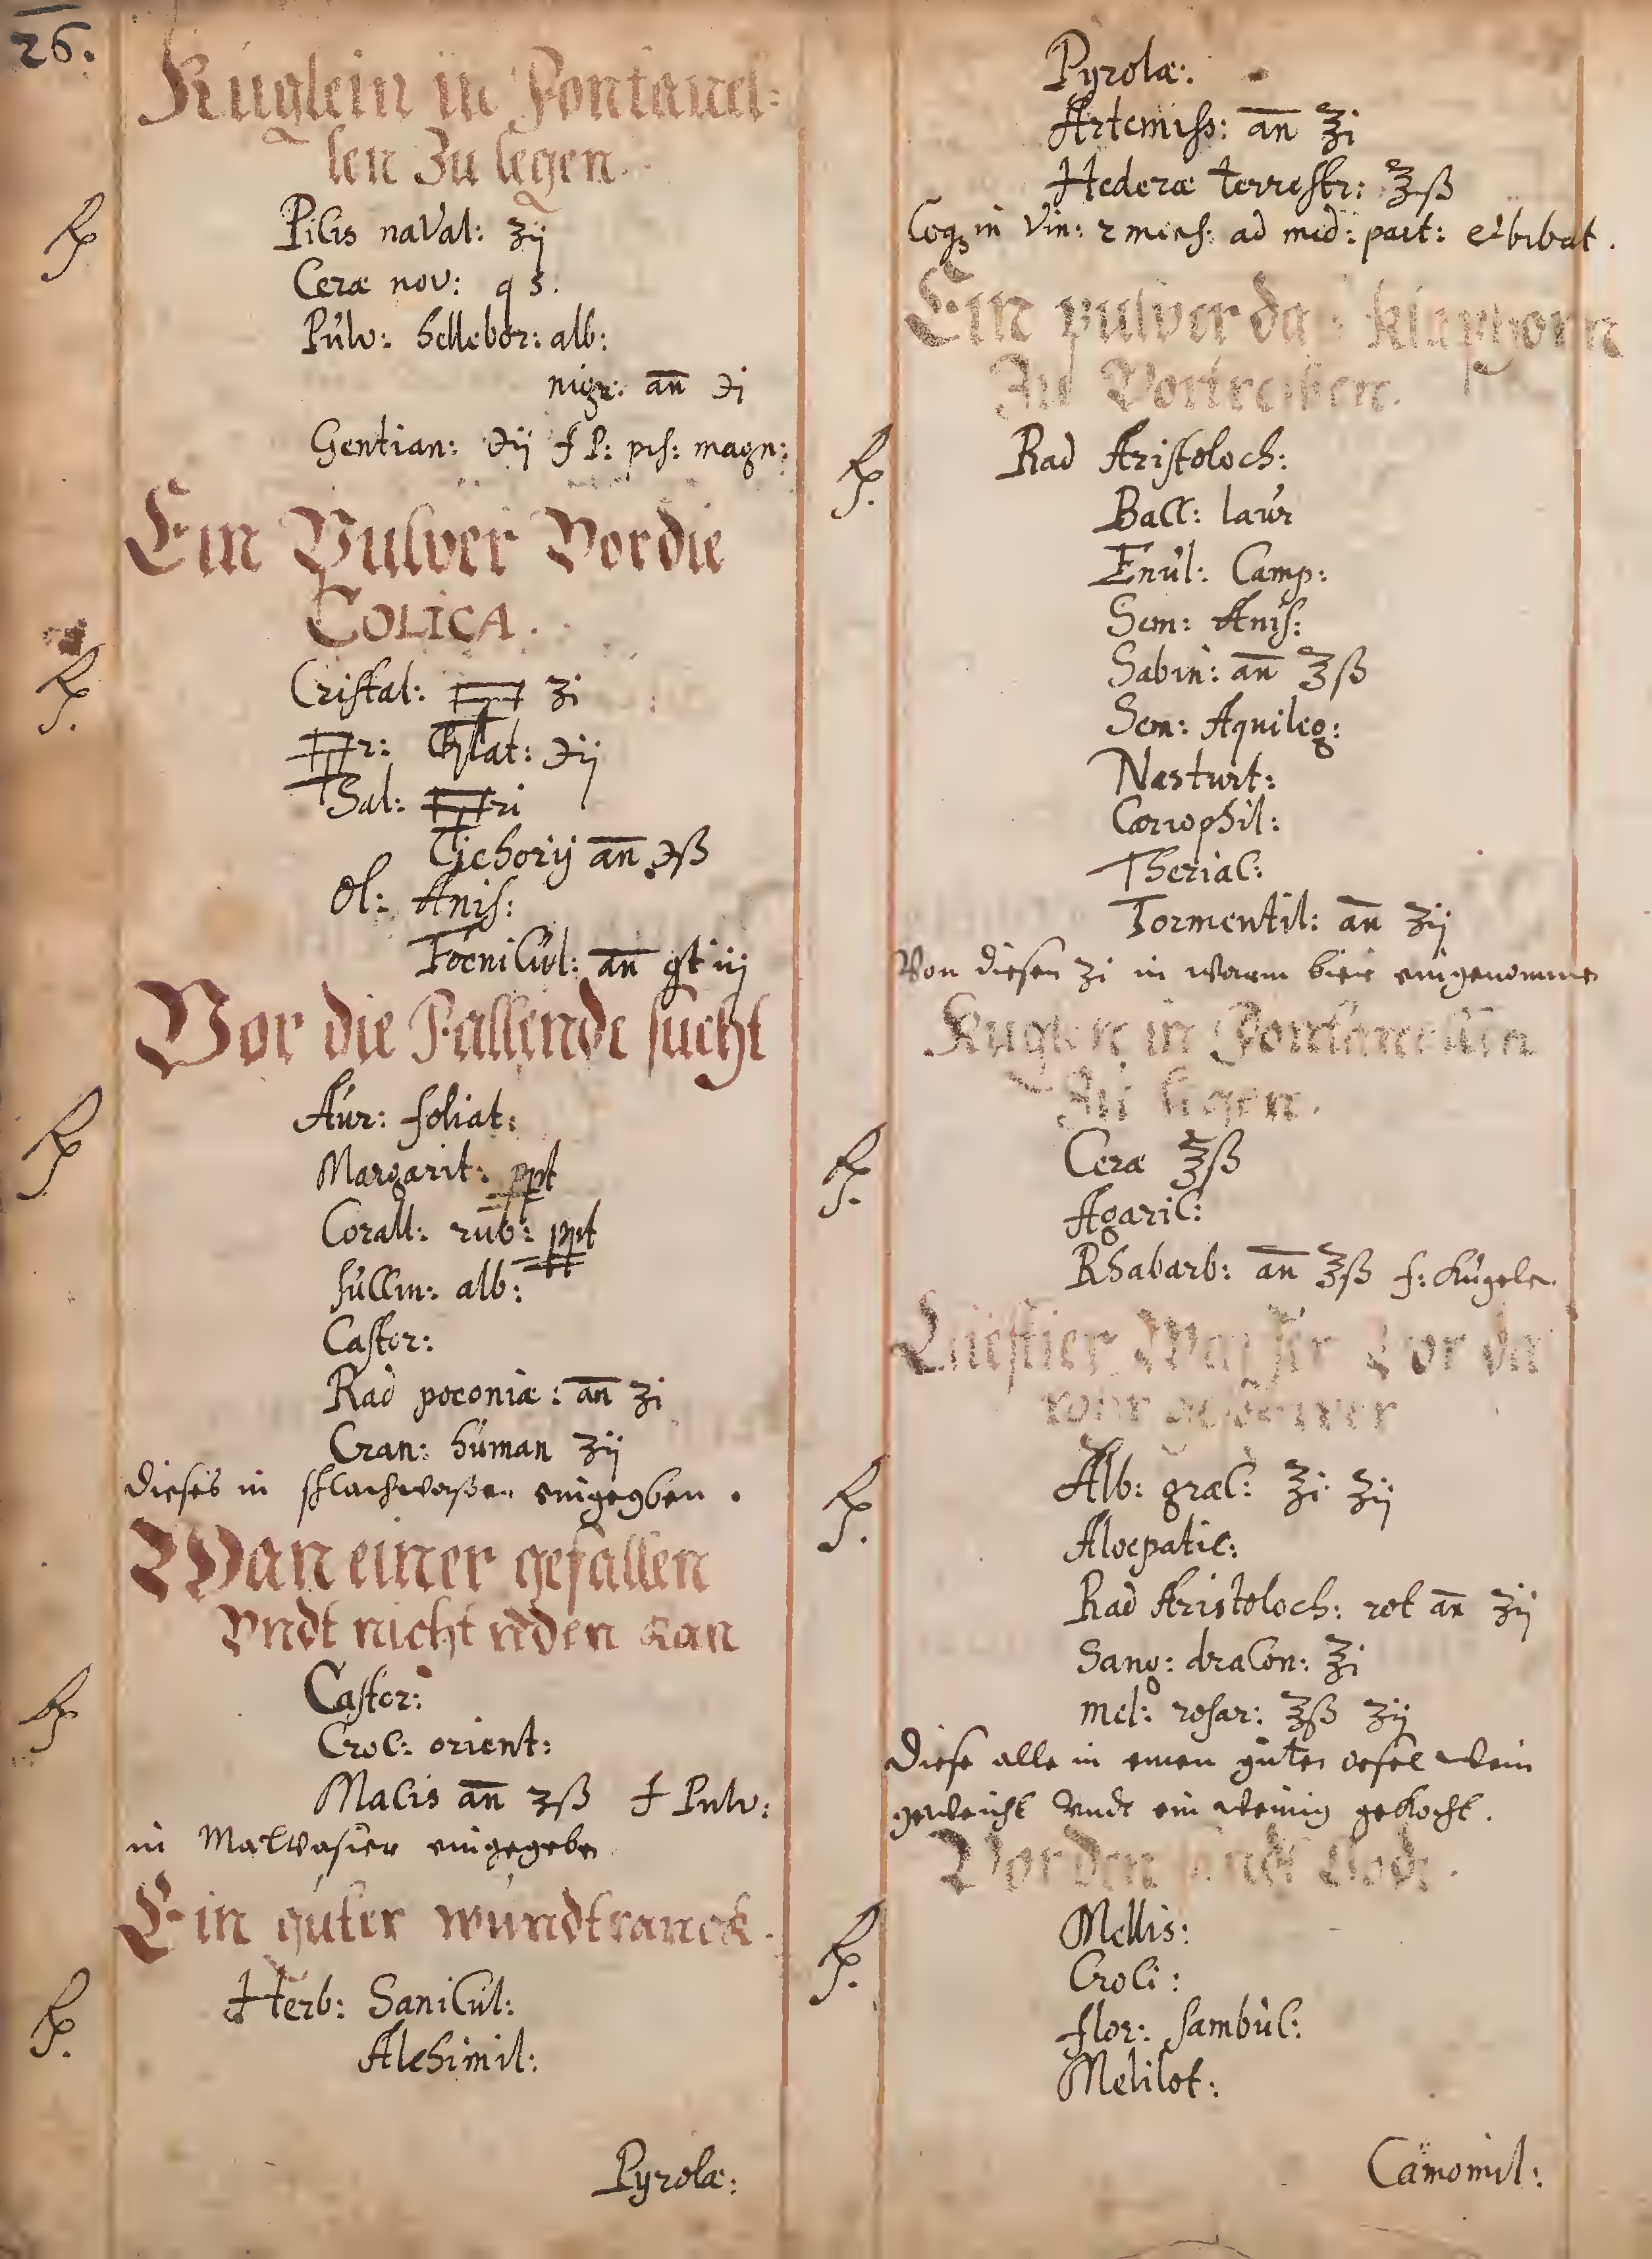 26.
Kuglein in Fontanel-
len Zu legen.
Rp Picis naval: ʒij
Ceræ nov: q s.
Pulv: hellebor: alb:
nigr: añ ℈i
Gentian: ℈ij f P: pis: magn:
Ein Pulver Vor die
COLICA.
Rp. Cristal: ʒi
℈ij
Sal:
Cichorij añ ℈ß
Ol: Anis:
Foenicul: añ gt iij
Vor die Fallende sucht
Rp Aur: foliat:
Margarit: ppt
Corall: rub: ppt
succin: alb:
Castor:
Rad poeoniæ: añ ʒi
Cran: human ʒij
dieses in eingegeben.
Wan einer gefallen
Vndt nicht reden kan
Rp Castor:
Croc: orient:
Macis añ ʒß f Pulv:
in Malvasier eingegeben
Ein guter wundtranck.
Rp. Herb: Sanicul:
Alchimil:
Pyrolæ:
Pyrolæ:
Artemiss: añ ℥i
Hederæ terrestr: ℥ß
Coq in Vin: 2 mens: ad med: part: et bibat.
Ein pulver das
Zu Vortreiben.
Rp. Rad Aristoloch:
Bacc: laur
Enul: Camp:
Sem: Anis:
Sabin: añ ℥ß
Sem: Aquileg:
Nasturt:
Cariophil:
Theriac:
Tormentil: añ ʒij
Von diesen ʒi in warm bier eingenommen
Kuglein in Fontanellen
Zu legen.
Rp. Ceræ ℥ß
Agaric:
Rhabarb: añ ℥ß f: kugele
Vor
Rp. Alb: græc: ℥i ʒij
Aloepatic:
Rad Aristoloch: rot añ ʒij
Sang: dracon: ℥i
mel: rosar: ℥ß ʒij
Diese alle in einen guten wein
geweicht Vndt ein wenig gekocht.
Vor den
Rp. Mellis:
Croci:
flor: sambuc:
Melilot:
Camomil: